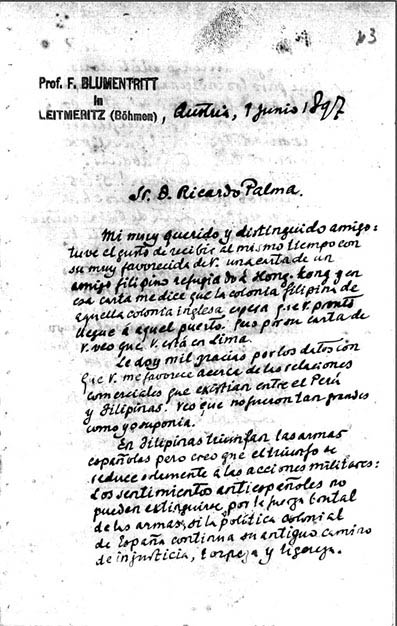 63
Prof. F. BLUMENTRITT
in
LEITMERITZ (Böhmen), Austria, 9 junio 1897
Sr. D. Ricardo Palma.
Mi muy querido y distinguido amigo:
tuve el gusto de recibir al mismo tiempo con
su muy favorecida de V. una carta de un
amigo filipino refugiado á Hong-kong y en
esa carta me dice que la colonia filipina de
aquella colonia inglesa espera que V. pronto
llegue á aquel puerto. Pues por su carta de
V. veo que V. está en Lima.
Le doy mil gracias por los datos con
que V. me favorece acerca de las relaciones
comerciales que existian entre el Perú
y Filipinas. Veo que no fueron tan grandes
como yo suponia.
En Filipinas triunfan las armas
españolas pero creo que el triunfo se
reduce solamente á las acciones militares:
Los sentimientos antiespañoles no
pueden extinguirse por la fuerza brutal
de las armas, si la política colonial
de España continua su antiguo camino
de injusticia, torpeza y ligereza.